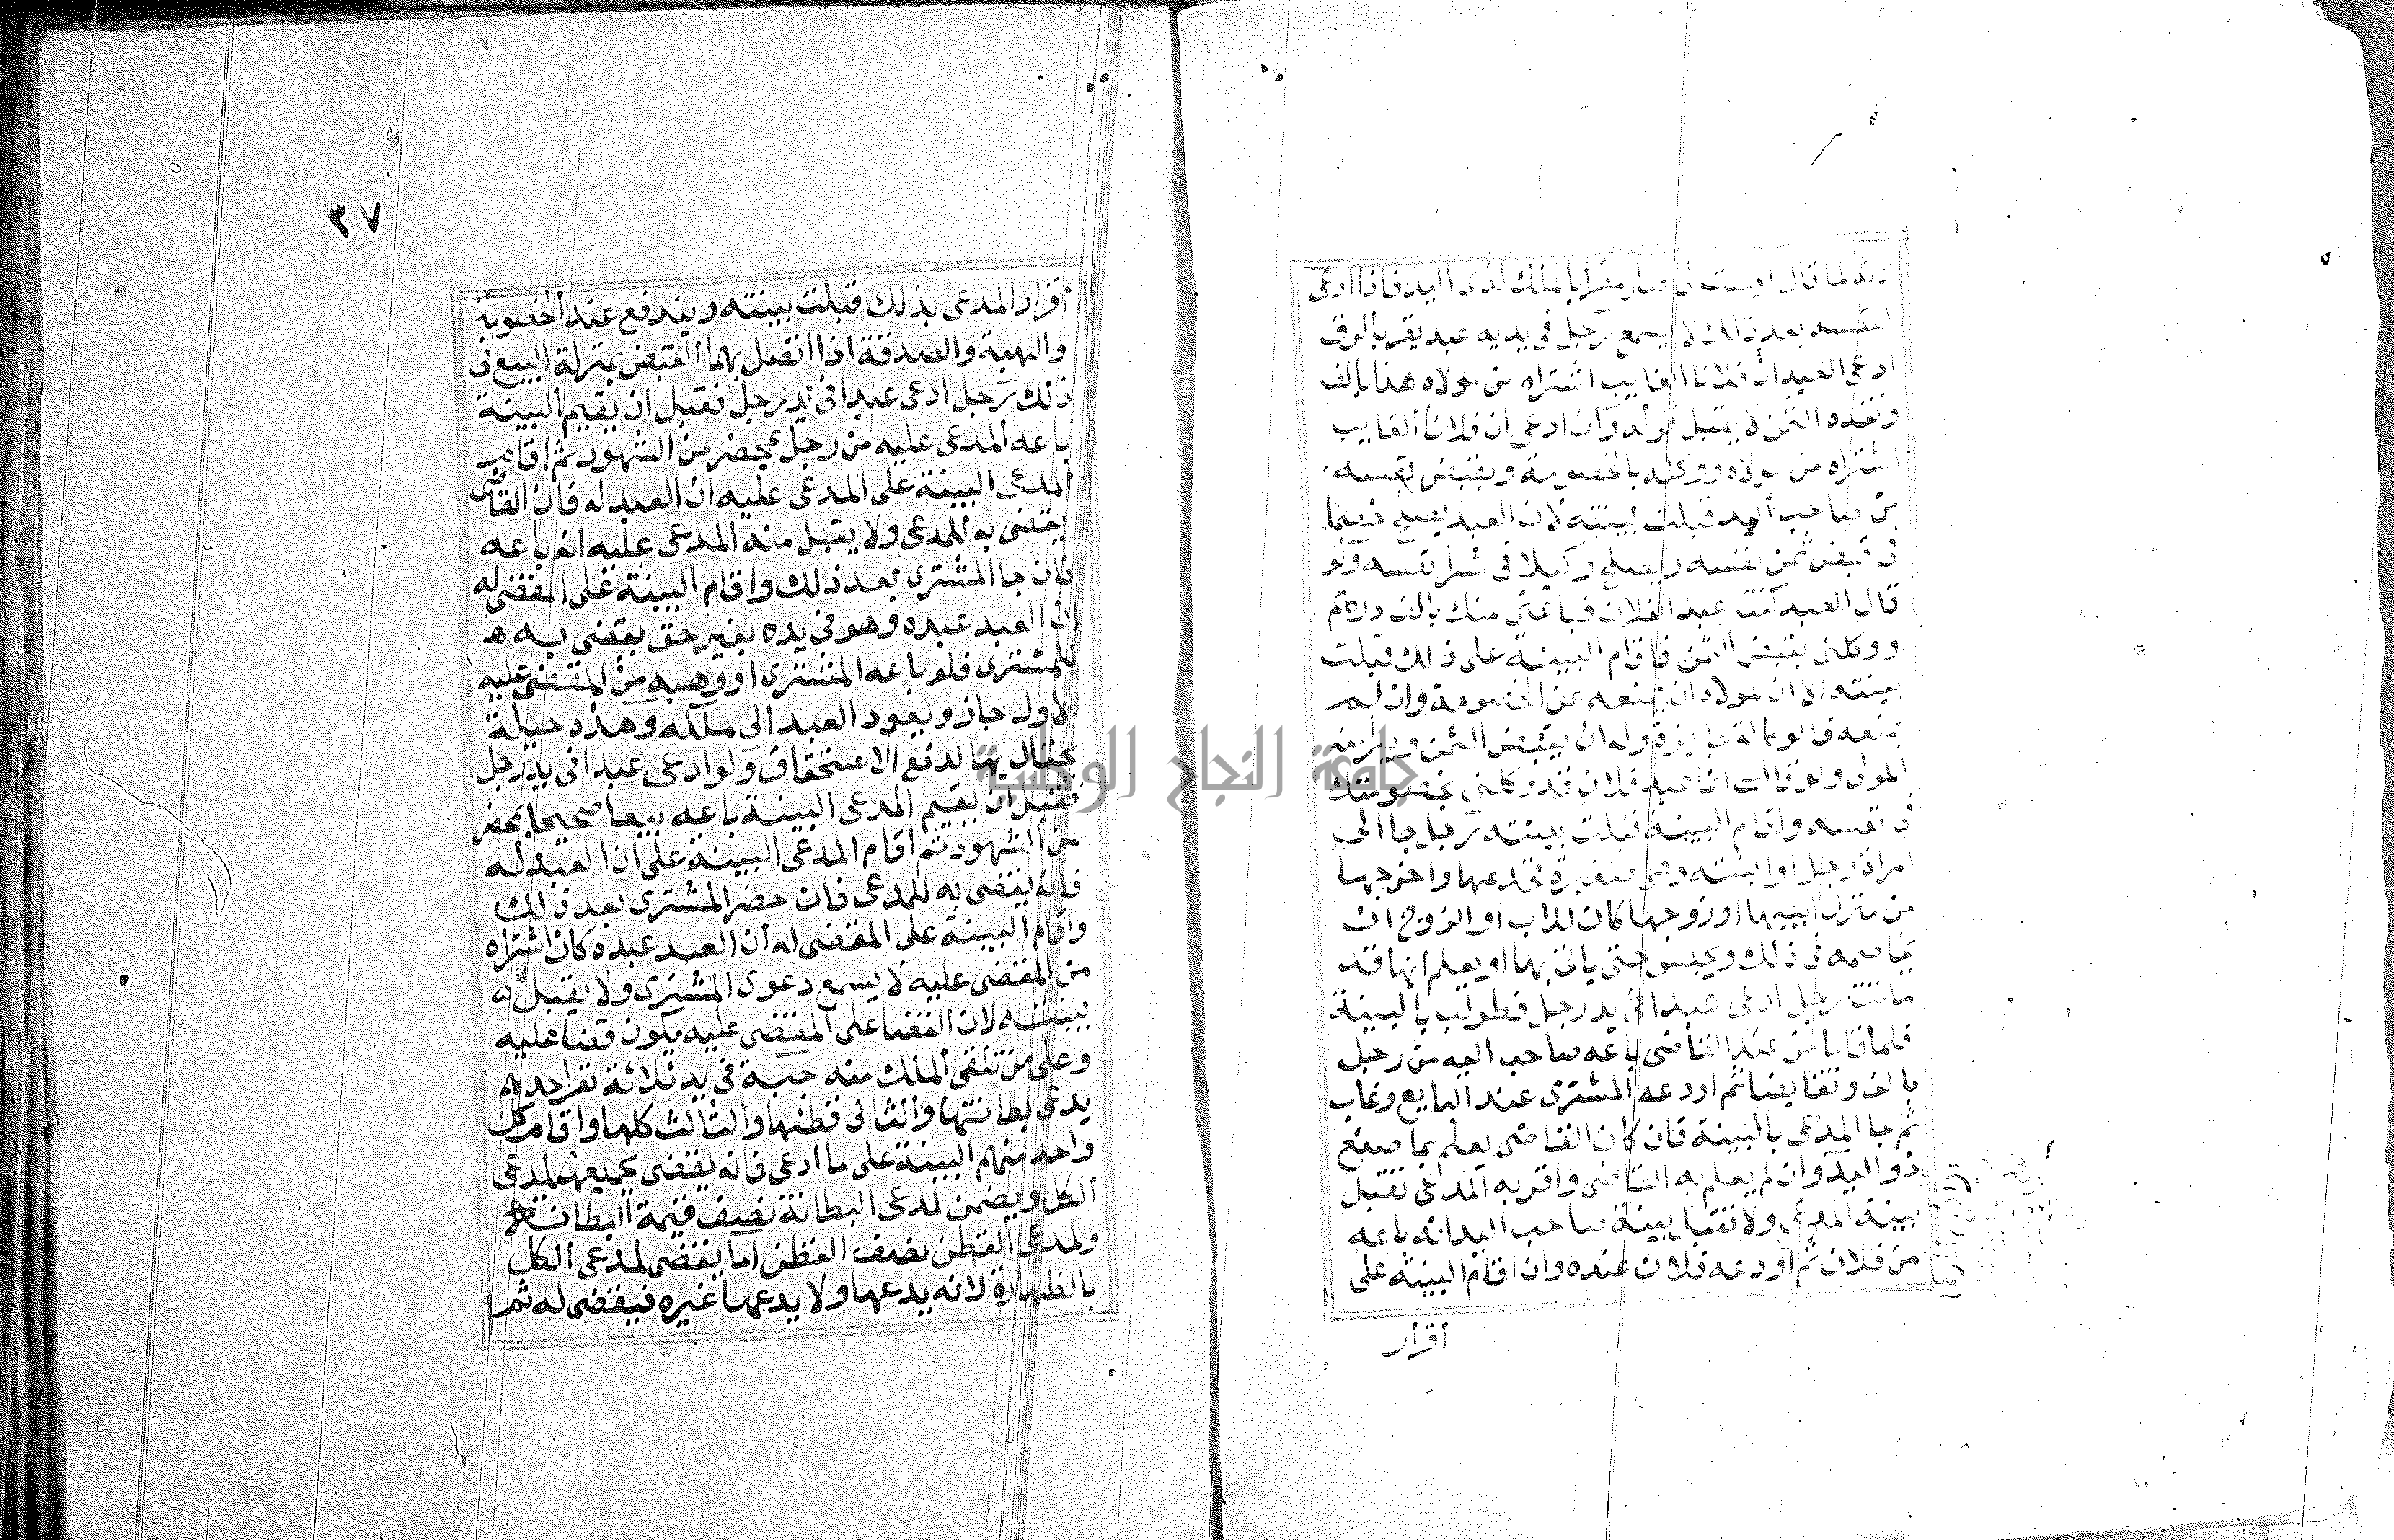 لانه لما قال ليست لى صار مقرا بالملك لذى اليد فاذا ادعى
لنفسه بعد ذلك لا يسمع رجل فى يديه عبد يقر بالرق
ادعى العبد ان فلانا الغايب اشتراه من مولاه هذا بالف
ونقده الثمن لا يقبل قوله وان ادعى ان فلانا الغايب
اشتراه من مولاه ووكله بالخصومة وبقبض نفسه
من صاحب اليد قبلت بينته لان العبد يصلح خصما
فى قبض ثمن نفسه ويصلح وكيلا فى شرا نفسه ولو
قال العبد كنت عبدا لفلان فباعنى منك بالف درهم
ووكلنى بقبض الثمن فاقام البينة على ذلك قبلت
بينته الا ان لمولاه ان يمنعه عن الخصومة وان لم
يمنعه فالوكالة جايزة وله ان يقبض الثمن ويلزمه
المولى ولو قال انا عبد فلان قد وكلنى بخصومتك
فى نفسه واقام البينة قبلت بينته رجل جا الى
امراة رجل او ابنته وهى صغيرة فخدعها واخرجها
من منزل ابيها او زوجها كان للاب او الزوج ان
يخاصمه فى ذلك ويحبس حتى ياتى بها او يعلم انها قد
ماتت رجل ادعى عبدا فى يد رجل فطولب بالبينة
فلما قاما من عند القاضى باعه صاحب اليد من رجل
بالف وتقابضا ثم اودعه المشترى عند البايع وغاب
ثم جا المدعى بالبينة فان كان القاضى يعلم بما صنع
ذو اليد وان لم يعلم به القاضى واقر به المدعى تقبل
بينة المدعى ولا تقبل بينة صاحب اليد انه باعه
من فلان ثم اودعه فلان عنده وان اقام البينة على
اقرار
٣٧
اقرار المدعى بذلك قبلت بينته ويندفع عند الخصومة
والهبة والصدقة اذا اتصل بهما القبض بمنزلة البيع فى
ذلك رجل ادعى عبدا فى يد رجل فقبل ان يقيم البينة
باعه المدعى عليه من رجل بمحضر من الشهود ثم اقام
المدعى البينة على المدعى عليه ان العبد له فان القاضى
يقضى به للمدعى ولا يقبل منه المدعى عليه انه باعه
فان جا المشترى بعد ذلك واقام البينة على المقضى له
ان العبد عبده وهو فى يده بغير حق يقضى به ه
للمشترى فلو باعه المشترى او وهبه من المقضى عليه
الاول جاز ويعود العبد الى ملكه وهذه حيلة
يحتال بها لدفع الاستحقاق ولو ادعى عبدا فى يد رجل
فقبل ان يقيم المدعى البينة باعه بيعا صحيحا بمحضر
من الشهود ثم اقام المدعى البينة على ان العبد له
فانه يقضى به للمدعى فان حضر المشترى بعد ذلك
واقام البينة على المقضى له ان العبد عبده كان اشتراه
من المقضى عليه لا يسمع دعوى المشترى ولا يقبل له
بينته لان القضا على المقضى عليه يكون قضا عليه
وعلى من تلقى الملك منه جبة فى يد ثلاثة نفر احدهم
يدعى بطانتها والثانى قطنها والثالث كلها واقام كل
واحد منهم البينة على ما ادعى فانه يقضى بجميعها لمدعى
الكل ويضمن لمدعى البطانة نصف قيمة البطانة
ولمدعى القطن نصف القطن اما يقضى لمدعى الكل
بالظهارة لانه يدعها ولا يدعها غيره فيقضى له ثم
جامعة النجاح الوطنية